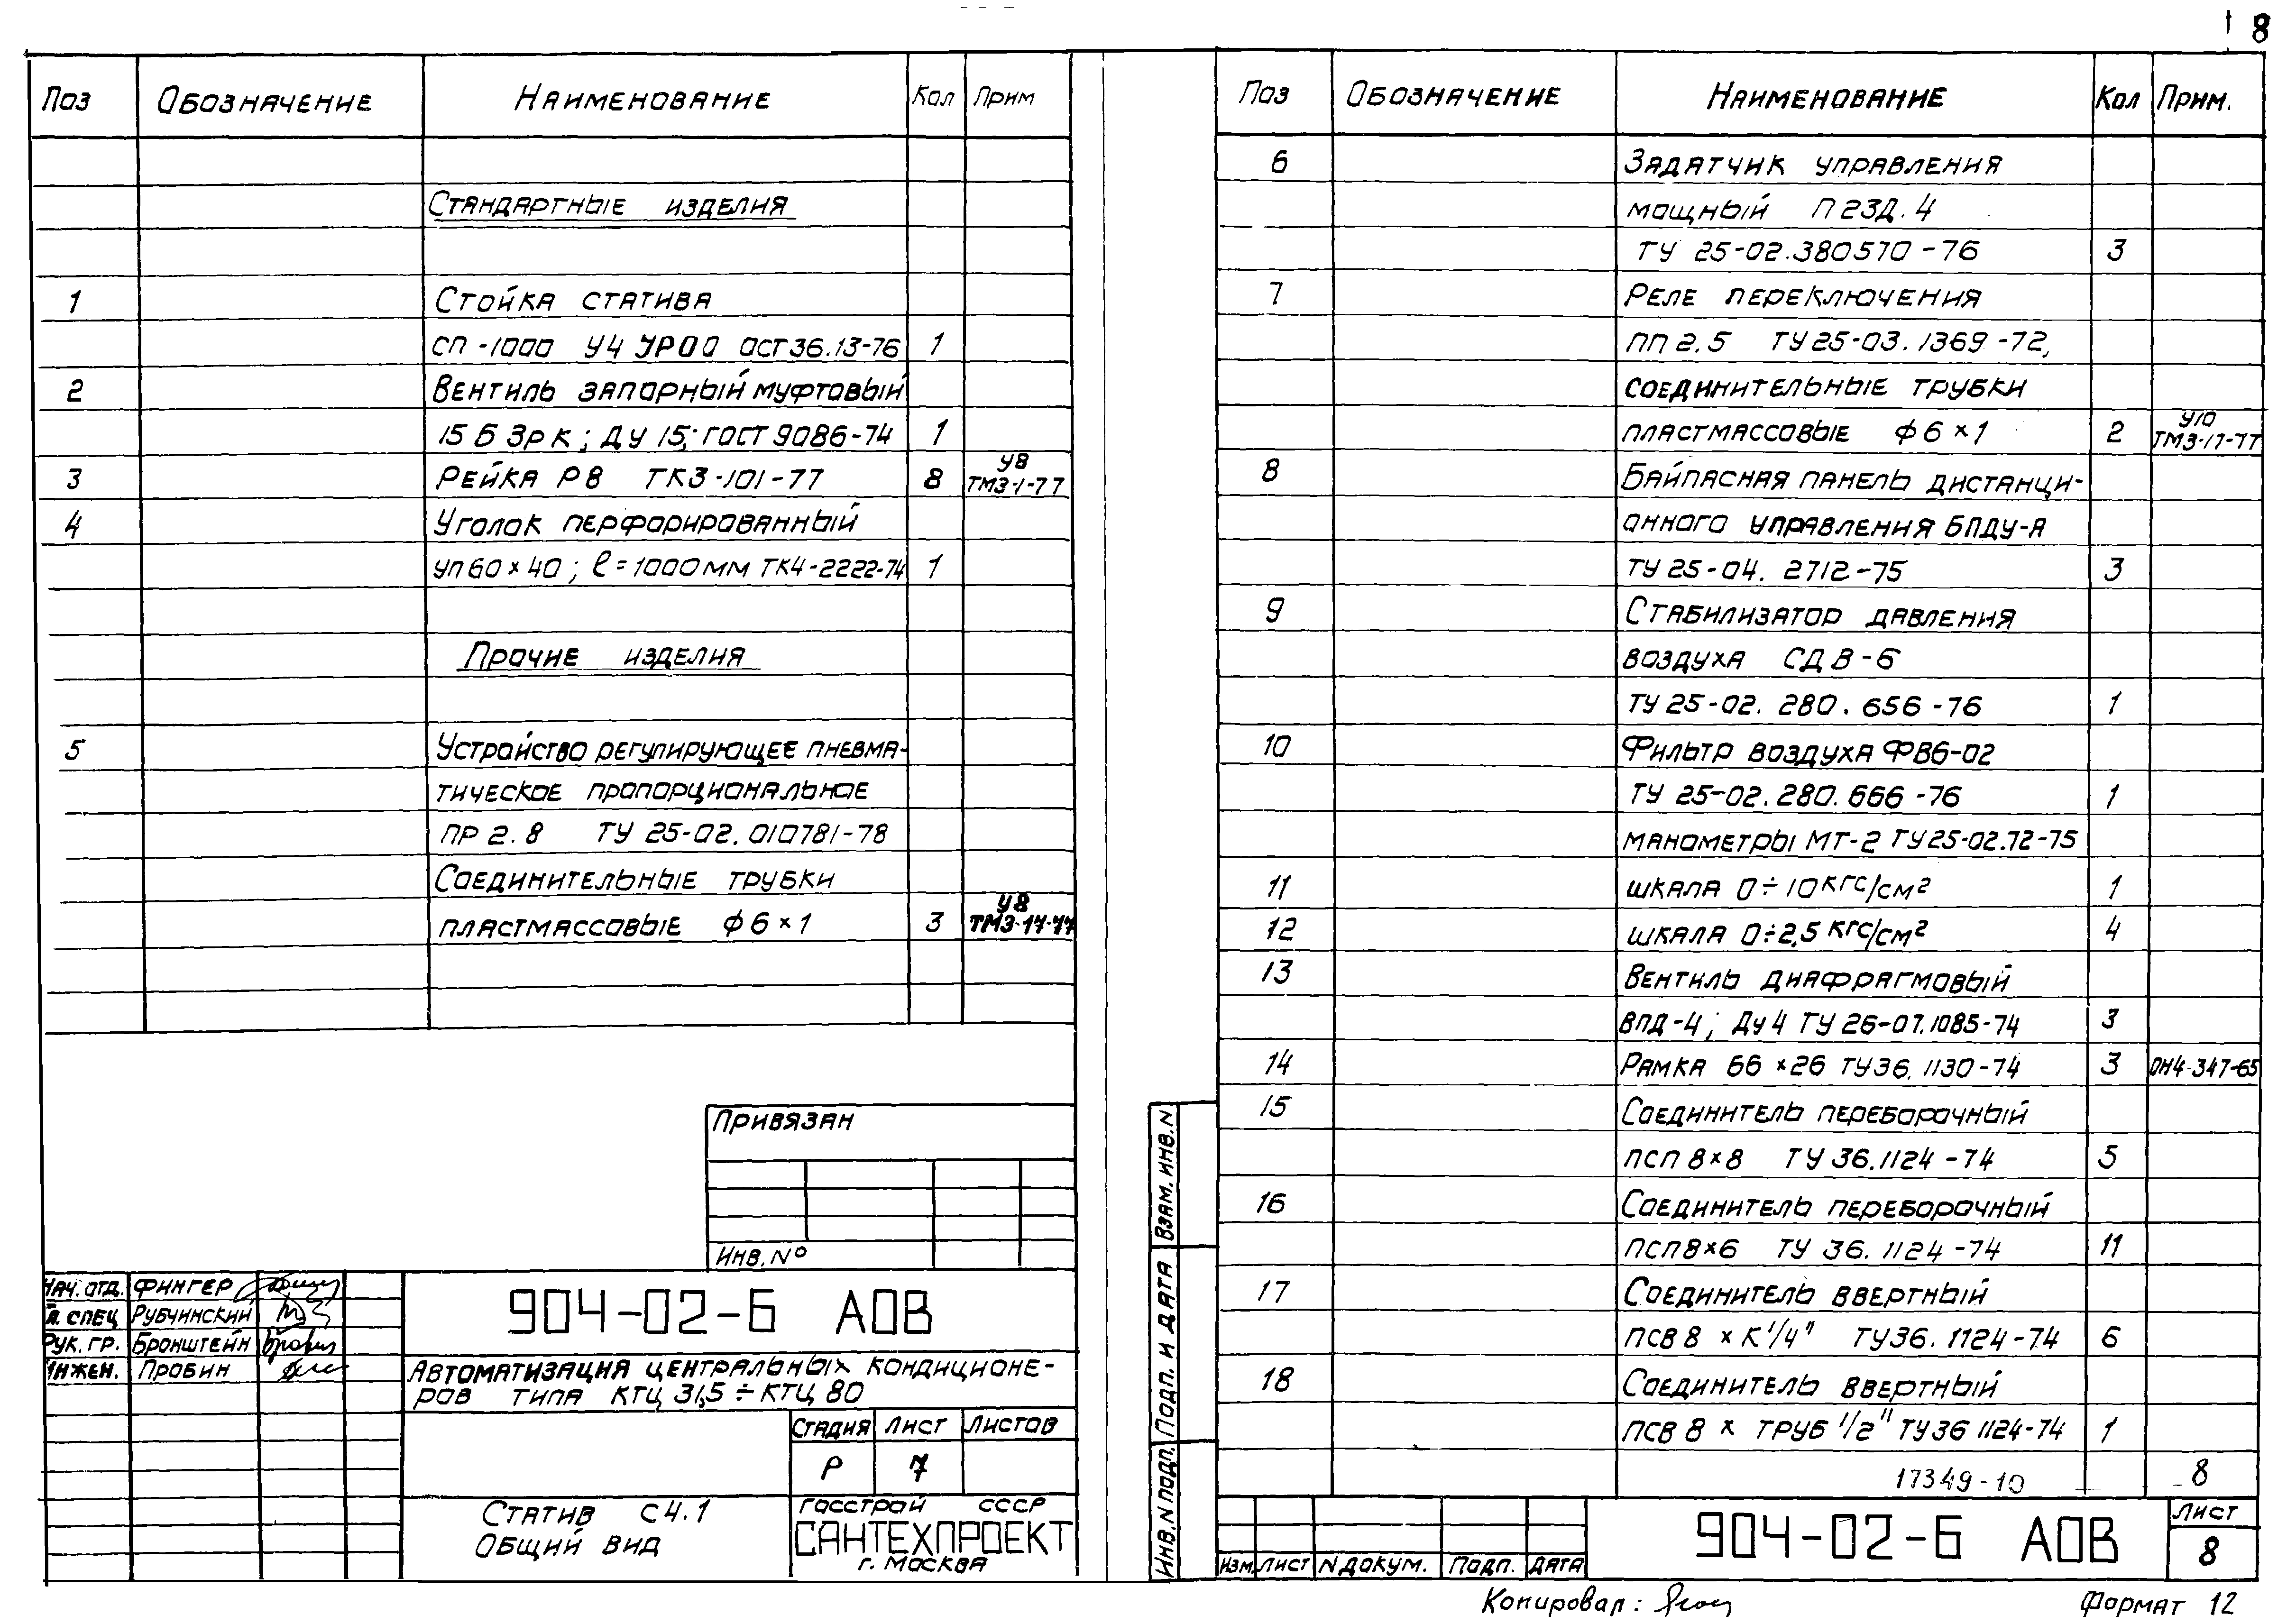 8
Поз Обозначение Наименование Кол Прим
Стандартные изделия
1 Стойка статива
СП-1000 У4 УР00 ОСТ 36.13-76 1
2 Вентиль запорный муфтовый
15 Б 3р к; ДУ 15; ГОСТ 9086-74 1
3 Рейка Р8 ТК3-101-77 8 У8 ТМ3-1-77
4 Уголок перфорированный
УП 60×40; l=1000мм ТК4-2222-74 1
Прочие изделия
5 Устройство регулирующее пневма-
тическое пропорциональное
ПР 2.8 ТУ 25-02.010781-78
Соединительные трубки
пластмассовые ф 6×1 3 У8 ТМ3-17-77
Привязан
Инв. №
Нач. отд. Фингер
Л. спец Рубчинский
Рук. гр. Бронштейн
Инжен. Пробин
904-02-6 АОВ
Автоматизация центральных кондиционе-
ров типа КТЦ 31,5÷КТЦ 80
Стадия Лист Листов
Р 7
Статив С4.1
Общий вид
Госстрой СССР
САНТЕХПРОЕКТ
г. Москва
Поз Обозначение Наименование Кол Прим.
6 Задатчик управления
мощный П23Д.4
ТУ 25-02.380570-76 3
7 Реле переключения
ПП 2.5 ТУ 25-03.1369-72,
соединительные трубки
пластмассовые ф 6×1 2 У10 ТМ3-17-77
8 Байпасная панель дистанци-
онного управления БПДУ-А
ТУ 25-04. 2712-75 3
9 Стабилизатор давления
воздуха СДВ-6
ТУ 25-02. 280. 656-76 1
10 Фильтр воздуха ФВ6-02
ТУ 25-02.280.666-76 1
манометры МТ-2 ТУ 25-02.72-75
11 шкала 0÷10 кгс/см² 1
12 шкала 0÷2,5 кгс/см² 4
13 Вентиль диафрагмовый
ВПД-4; Ду 4 ТУ 26-07.1085-74 3
14 Рамка 66×26 ТУ36.1130-74 3 ОН4-347-65
15 Соединитель переборочный
ПСП 8×8 ТУ 36.1124-74 5
16 Соединитель переборочный
ПСП 8×6 ТУ 36.1124-74 11
17 Соединитель ввертный
ПСВ 8 × К 1/4" ТУ36.1124-74 6
18 Соединитель ввертный
ПСВ 8 × ТРУБ 1/2" ТУ36 1124-74 1
17349-10 8
Взам. инв. N
Подп. и дата
Инв. N подл.
Изм. Лист N докум. Подп. Дата
904-02-6 АОВ
Лист
8
Копировал:
Формат 12